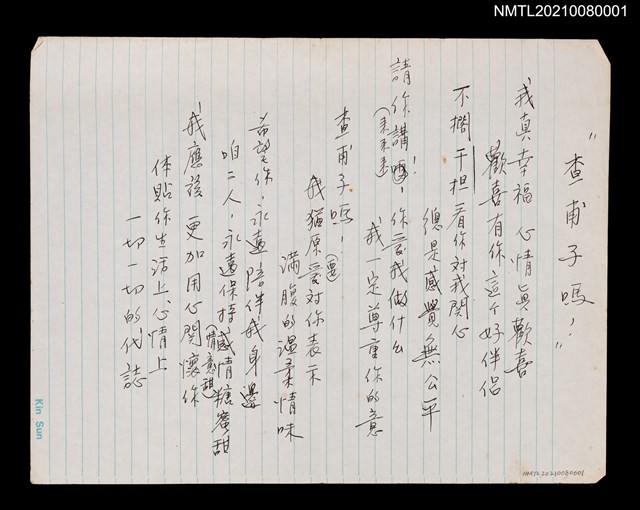 "查甫子嗎!"
我真幸福 心情真歡喜
歡喜有你這个好伴侶
不擱干担看你對我関心
總是感覺無公平
請你講嗎!你愛我做什么
(来来来)!
我一定尊重你的意
查甫子嗎!
我猶原愛(還)對你表示
滿腹的温柔情味
希望你,永遠陪伴我身邊
咱二人,永遠保持感情糖蜜甜
(情意甜)
我應該更加用心関懷你
体貼你生活上心情上
一切一切的代誌
NMTL20210080001
Kin Sun
NMTL20210080001